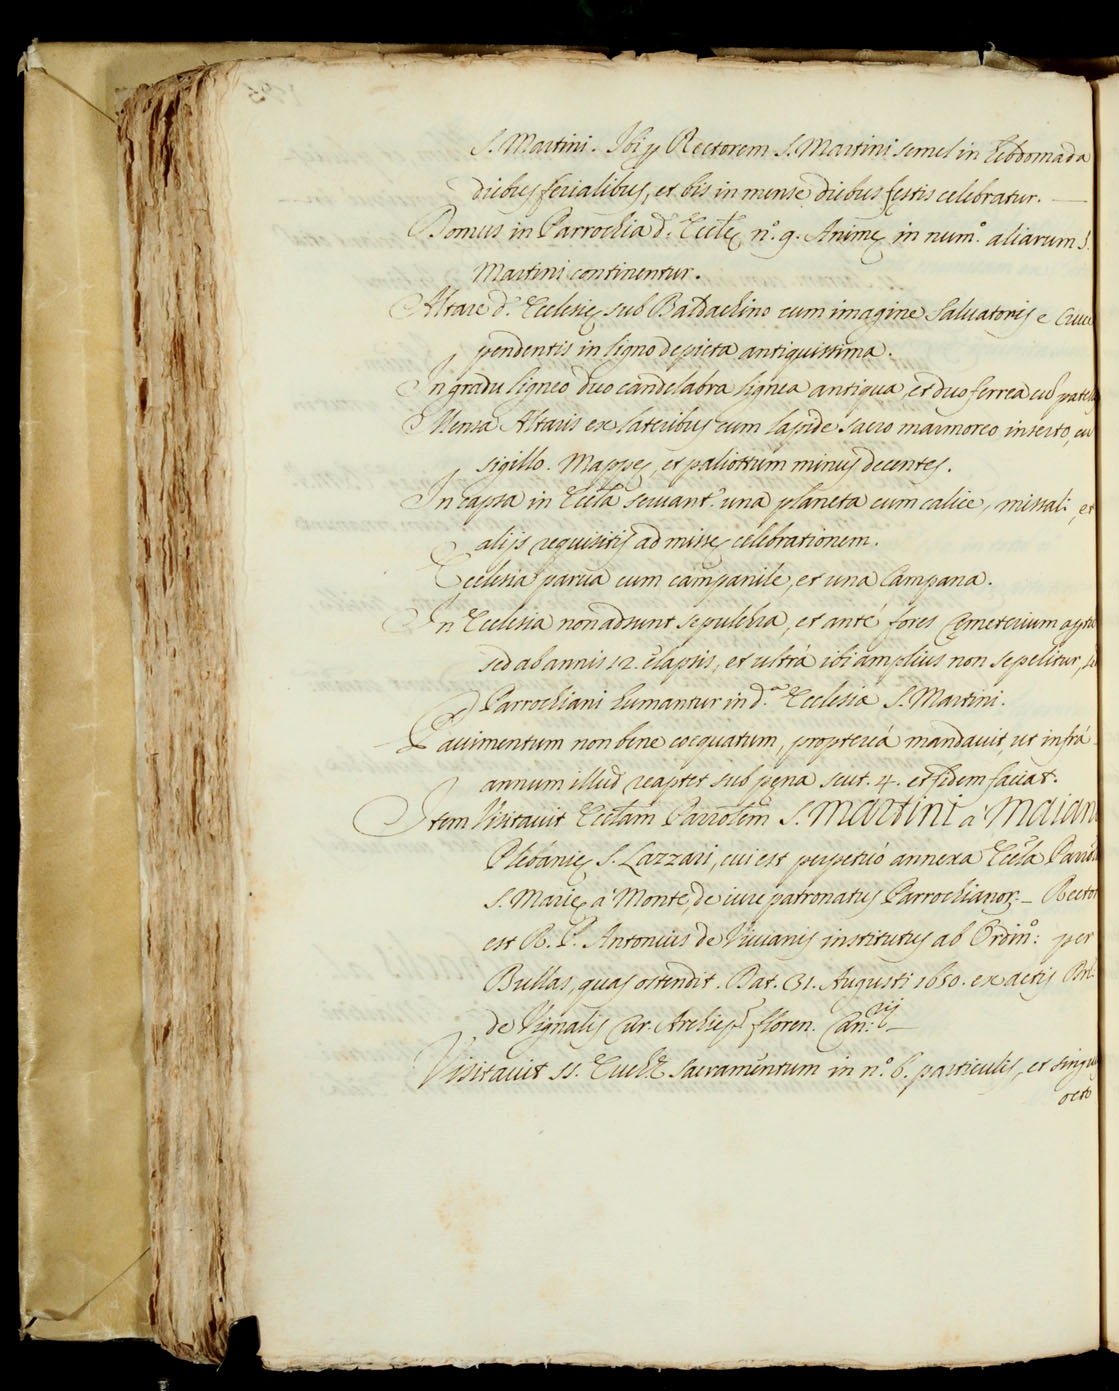 S. Martini. Ibi p Rectorem S. Martini semel in hebdomada
diebus ferialibus, et bis in mense diebus festis celebratur.
Domus in Parrochia d.ę Eccl̃ę n.º 9. Animę in num.º aliarum S.
Martini continentur.
Altare d.ę Ecclesię sub Baldachino cum imagine Salvatoris e Cruce
pendentis in ligno depicta antiquissima.
In gradu ligneo duo candelabra lignea antiqua, et duo ferrea cũ patellis
Mensa Altaris ex lateribus cum lapide sacro marmoreo inserto, cu
sigillo. Mappę, et paliottum minus decentes.
In capsa in Eccl̃a servant.r una planeta cum calice, missali, et
alijs requisitis ad missę celebrationem.
Ecclesia parva cum campanile, et una Campana.
In Ecclesia non adsunt sepulchra, et ante fores Cęmeterium aptu
sed ab annis 12. elapsis, et ultrà ibi amplius non sepelitur, sed
Parrochiani humantur in d.a Ecclesia S. Martini.
Pavimentum non bene coequatum, proptereà mandavit, ut infrà
annum illud reaptet sub pęna scut. 4. et fidem faciat.
Item Visitavit Eccl̃am Parrol̃em S. Martini à Maian
Plebanię S. Lazzari, cui est perpetuò annexa Eccl̃a Parrõ
S. Marię à Monte, de iure patronatus Parrochianor. - Rector
est R. P. Antonius de Vivianis institutus ab Ordin.º: per
Bullas, quas ostendit. Dat. 31. Augusti 1650. ex actis
de Vignalis Cur. Archiep.s floren. Can.rij
Visitavit SS. Euch.æ Sacramentum in n.º 6. particulis, et singu
octo